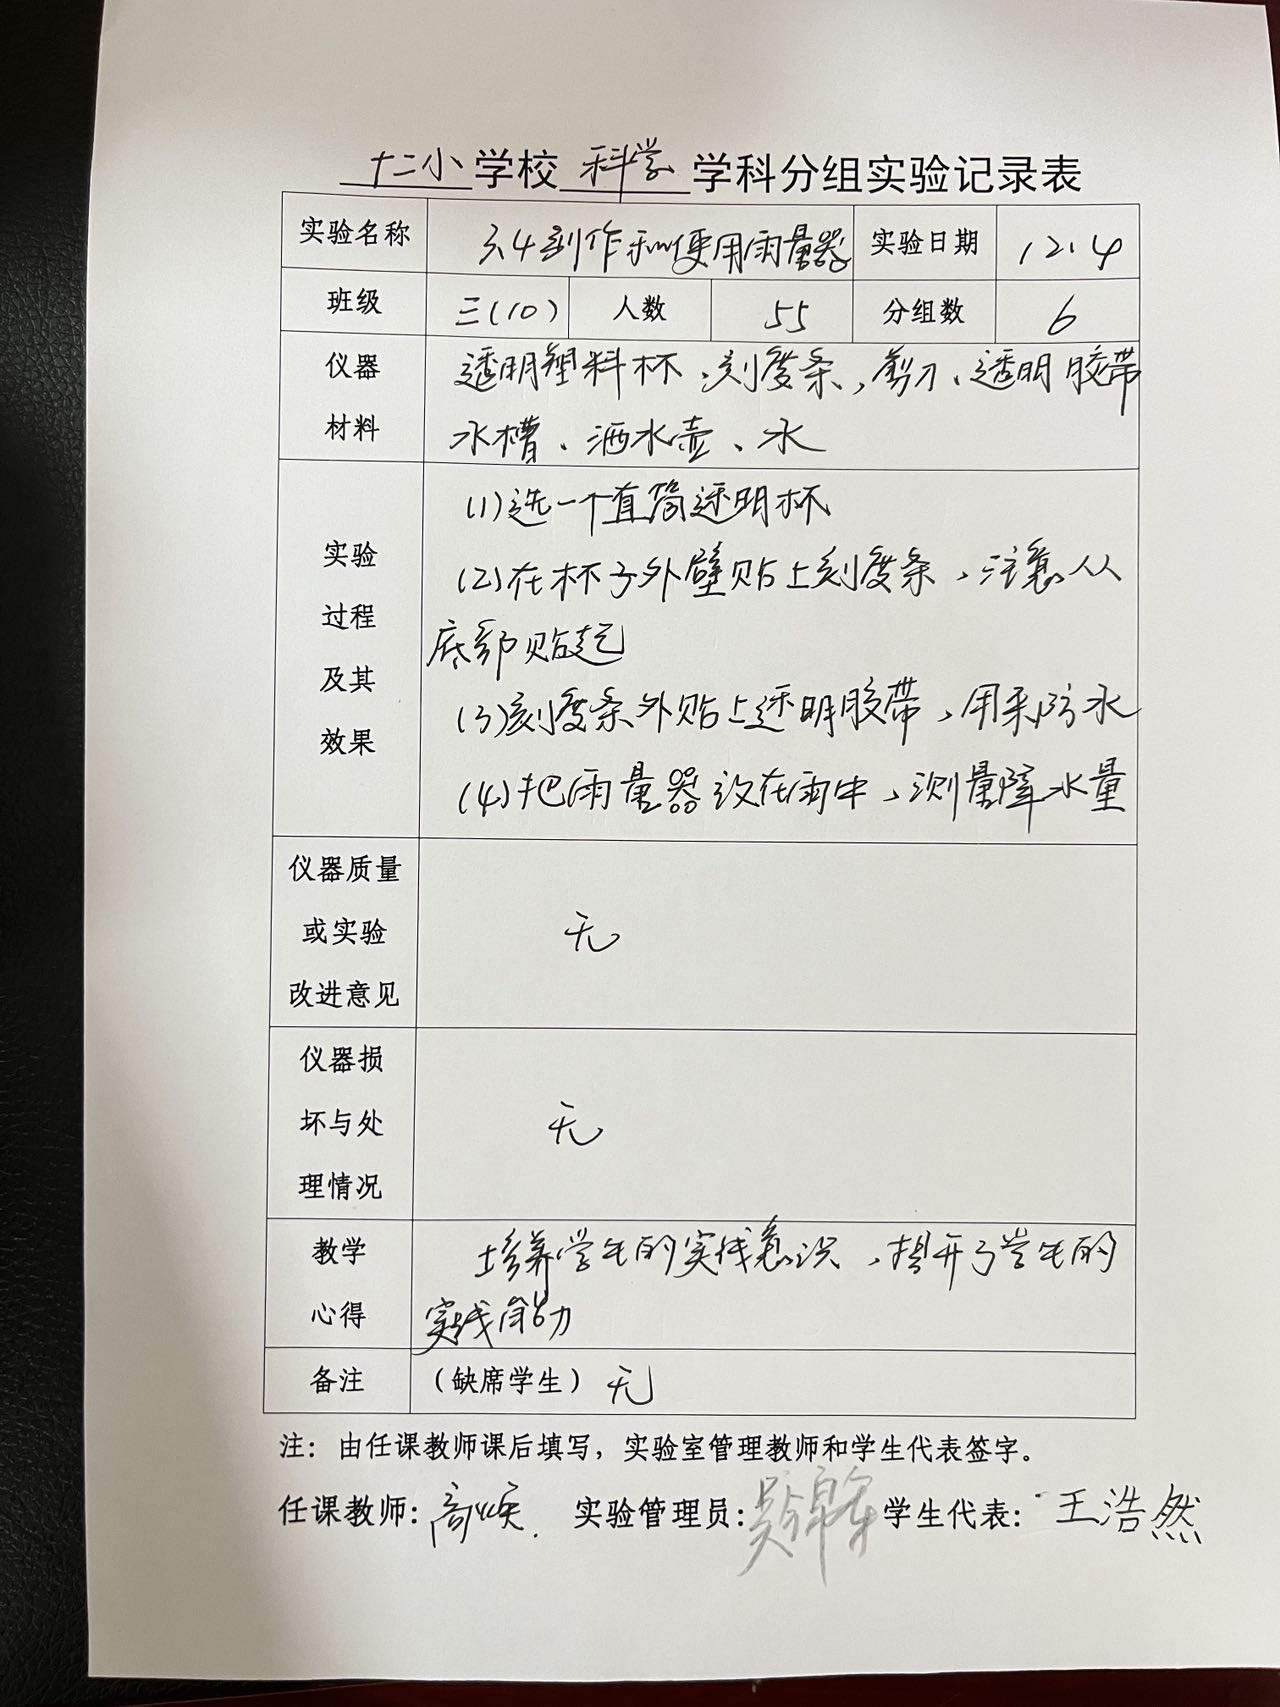 十二小学校 科学 学科分组实验记录表
实验名称 3.4制作和使用雨量器 实验日期 12.4
班级 三(10) 人数 55 分组数 6
仪器材料 透明塑料杯、刻度条、剪刀、透明胶带
水槽、洒水壶、水
实验过程及其效果 (1)选一个直筒透明杯
(2)在杯子外壁贴上刻度条,注意从
底部贴起
(3)刻度条外贴上透明胶带,用来防水
(4)把雨量器放在雨中,测量降水量
仪器质量或实验改进意见 无
仪器损坏与处理情况 无
教学心得 培养学生的实践意识,提升了学生的
实践能力
备注 (缺席学生) 无
注:由任课教师课后填写,实验室管理教师和学生代表签字。
任课教师: 实验管理员: 学生代表:王浩然